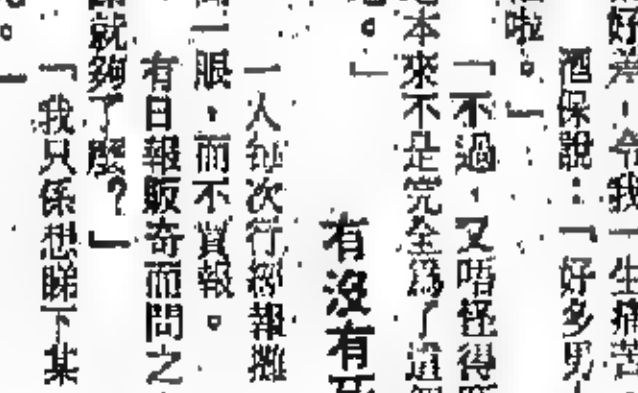 好差,令我一生痛苦
酒保說:「好多男
啦。」
「不過,又唔怪得
本來不是完全爲了這
。」
有沒有
一人每次行經報攤
一眼,而不買報。
有日報販奇而問之
就夠了麼?」
「我只係想睇下某
。」